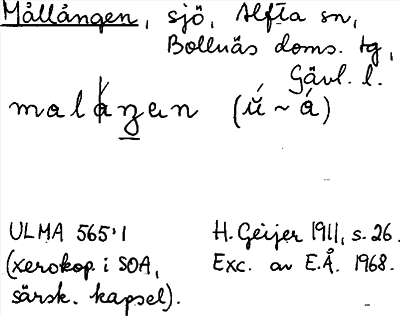 Mållången, sjö, Alfta sn,
Bollnäs doms. tg,
Gävl. l.
malázen (ŭ́ ~ á)
ULMA 565:1 H. Geijer 1911, s. 26.
(xerokop. i SOA, Exc. av E.Å. 1968.
särsk. kapsel).